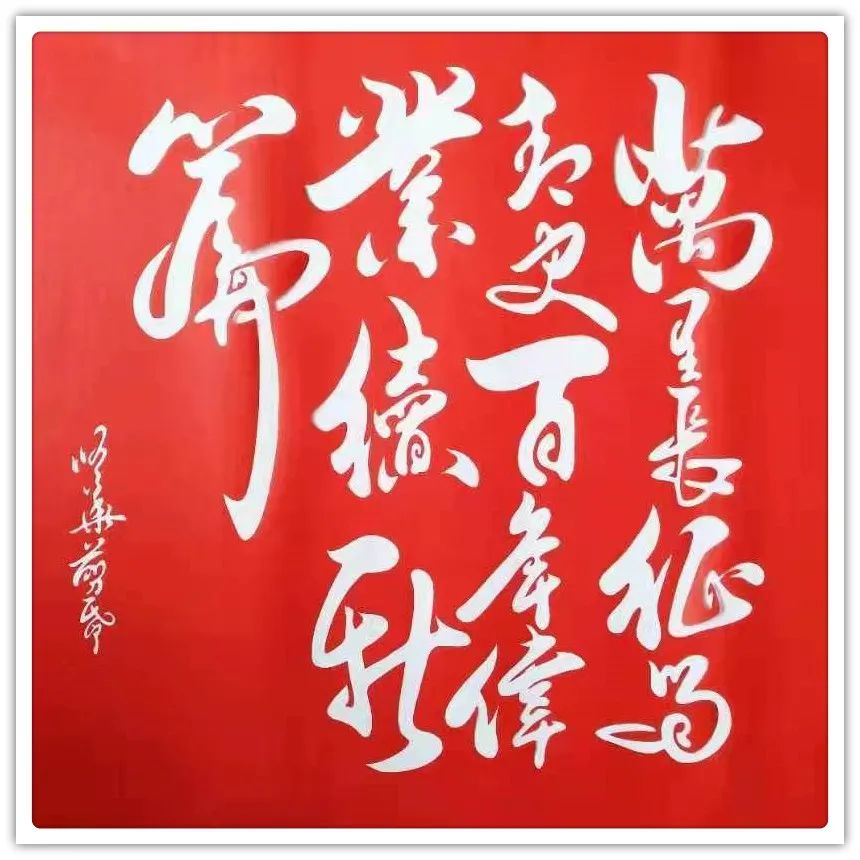 萬里長征寫
史百年偉
業續新
篇
華剪